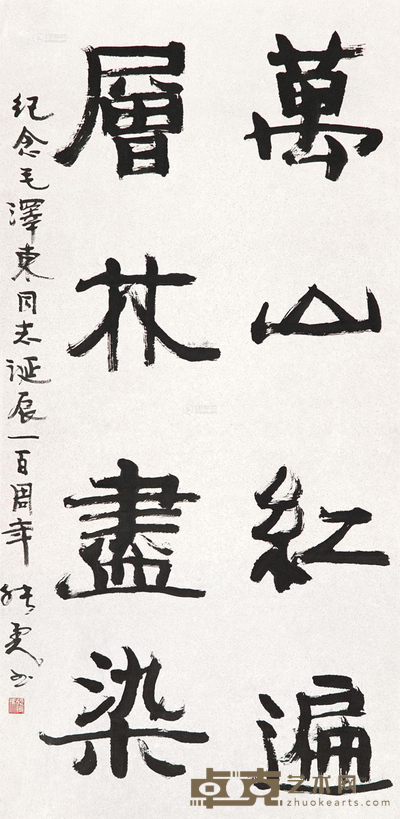 萬山紅遍
層林盡染
纪念毛澤東同志诞辰一百周年
卓克艺术网
zhuokearts.com